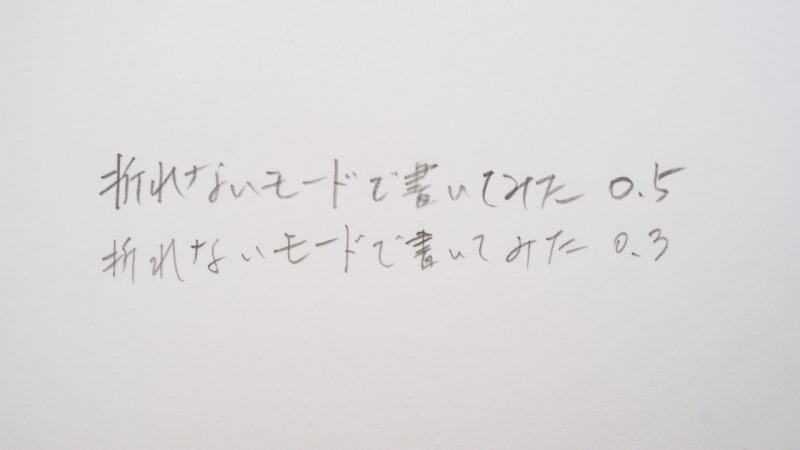 折れないモードで書いてみた 0.5
折れないモードで書いてみた 0.3